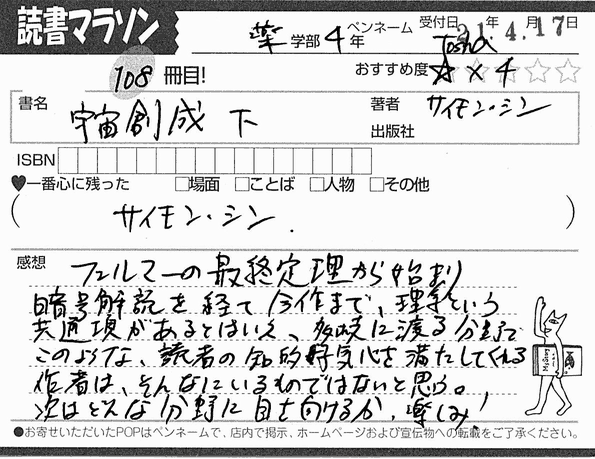 読書マラソン
薬 学部 4 年 ペンネーム Tosha 受付日 21年 4.17日
108 冊目! おすすめ度 ☆×4
書名 宇宙創成 下 著者 サイモン・シン
出版社
ISBN
♥一番心に残った □場面 □ことば □人物 □その他
( サイモン・シン. )
感想 フェルマーの最終定理から始まり
暗号解読を経て今作まで、理学という
共通項があるとはいえ、多岐に渡る分野で
このような、読者の知的好気心を満たしてくれる
作者は、そんなにいるものではないと思う。
次はどんな分野に目を向けるか、楽しみ!
●お寄せいただいたPOPはペンネームで、店内で掲示、ホームページおよび宣伝物への転載をご了承ください。